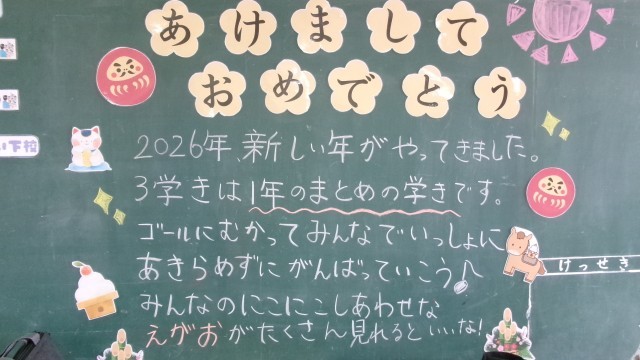 あけまして
おめでとう
い下校
2026年、新しい年がやってきました。
3学きは1年のまとめの学きです。
ゴールにむかってみんなでいっしょに
あきらめずにがんばっていこう♪
けっせき
みんなのにこにこしあわせな
えがおがたくさん見れるといいな!